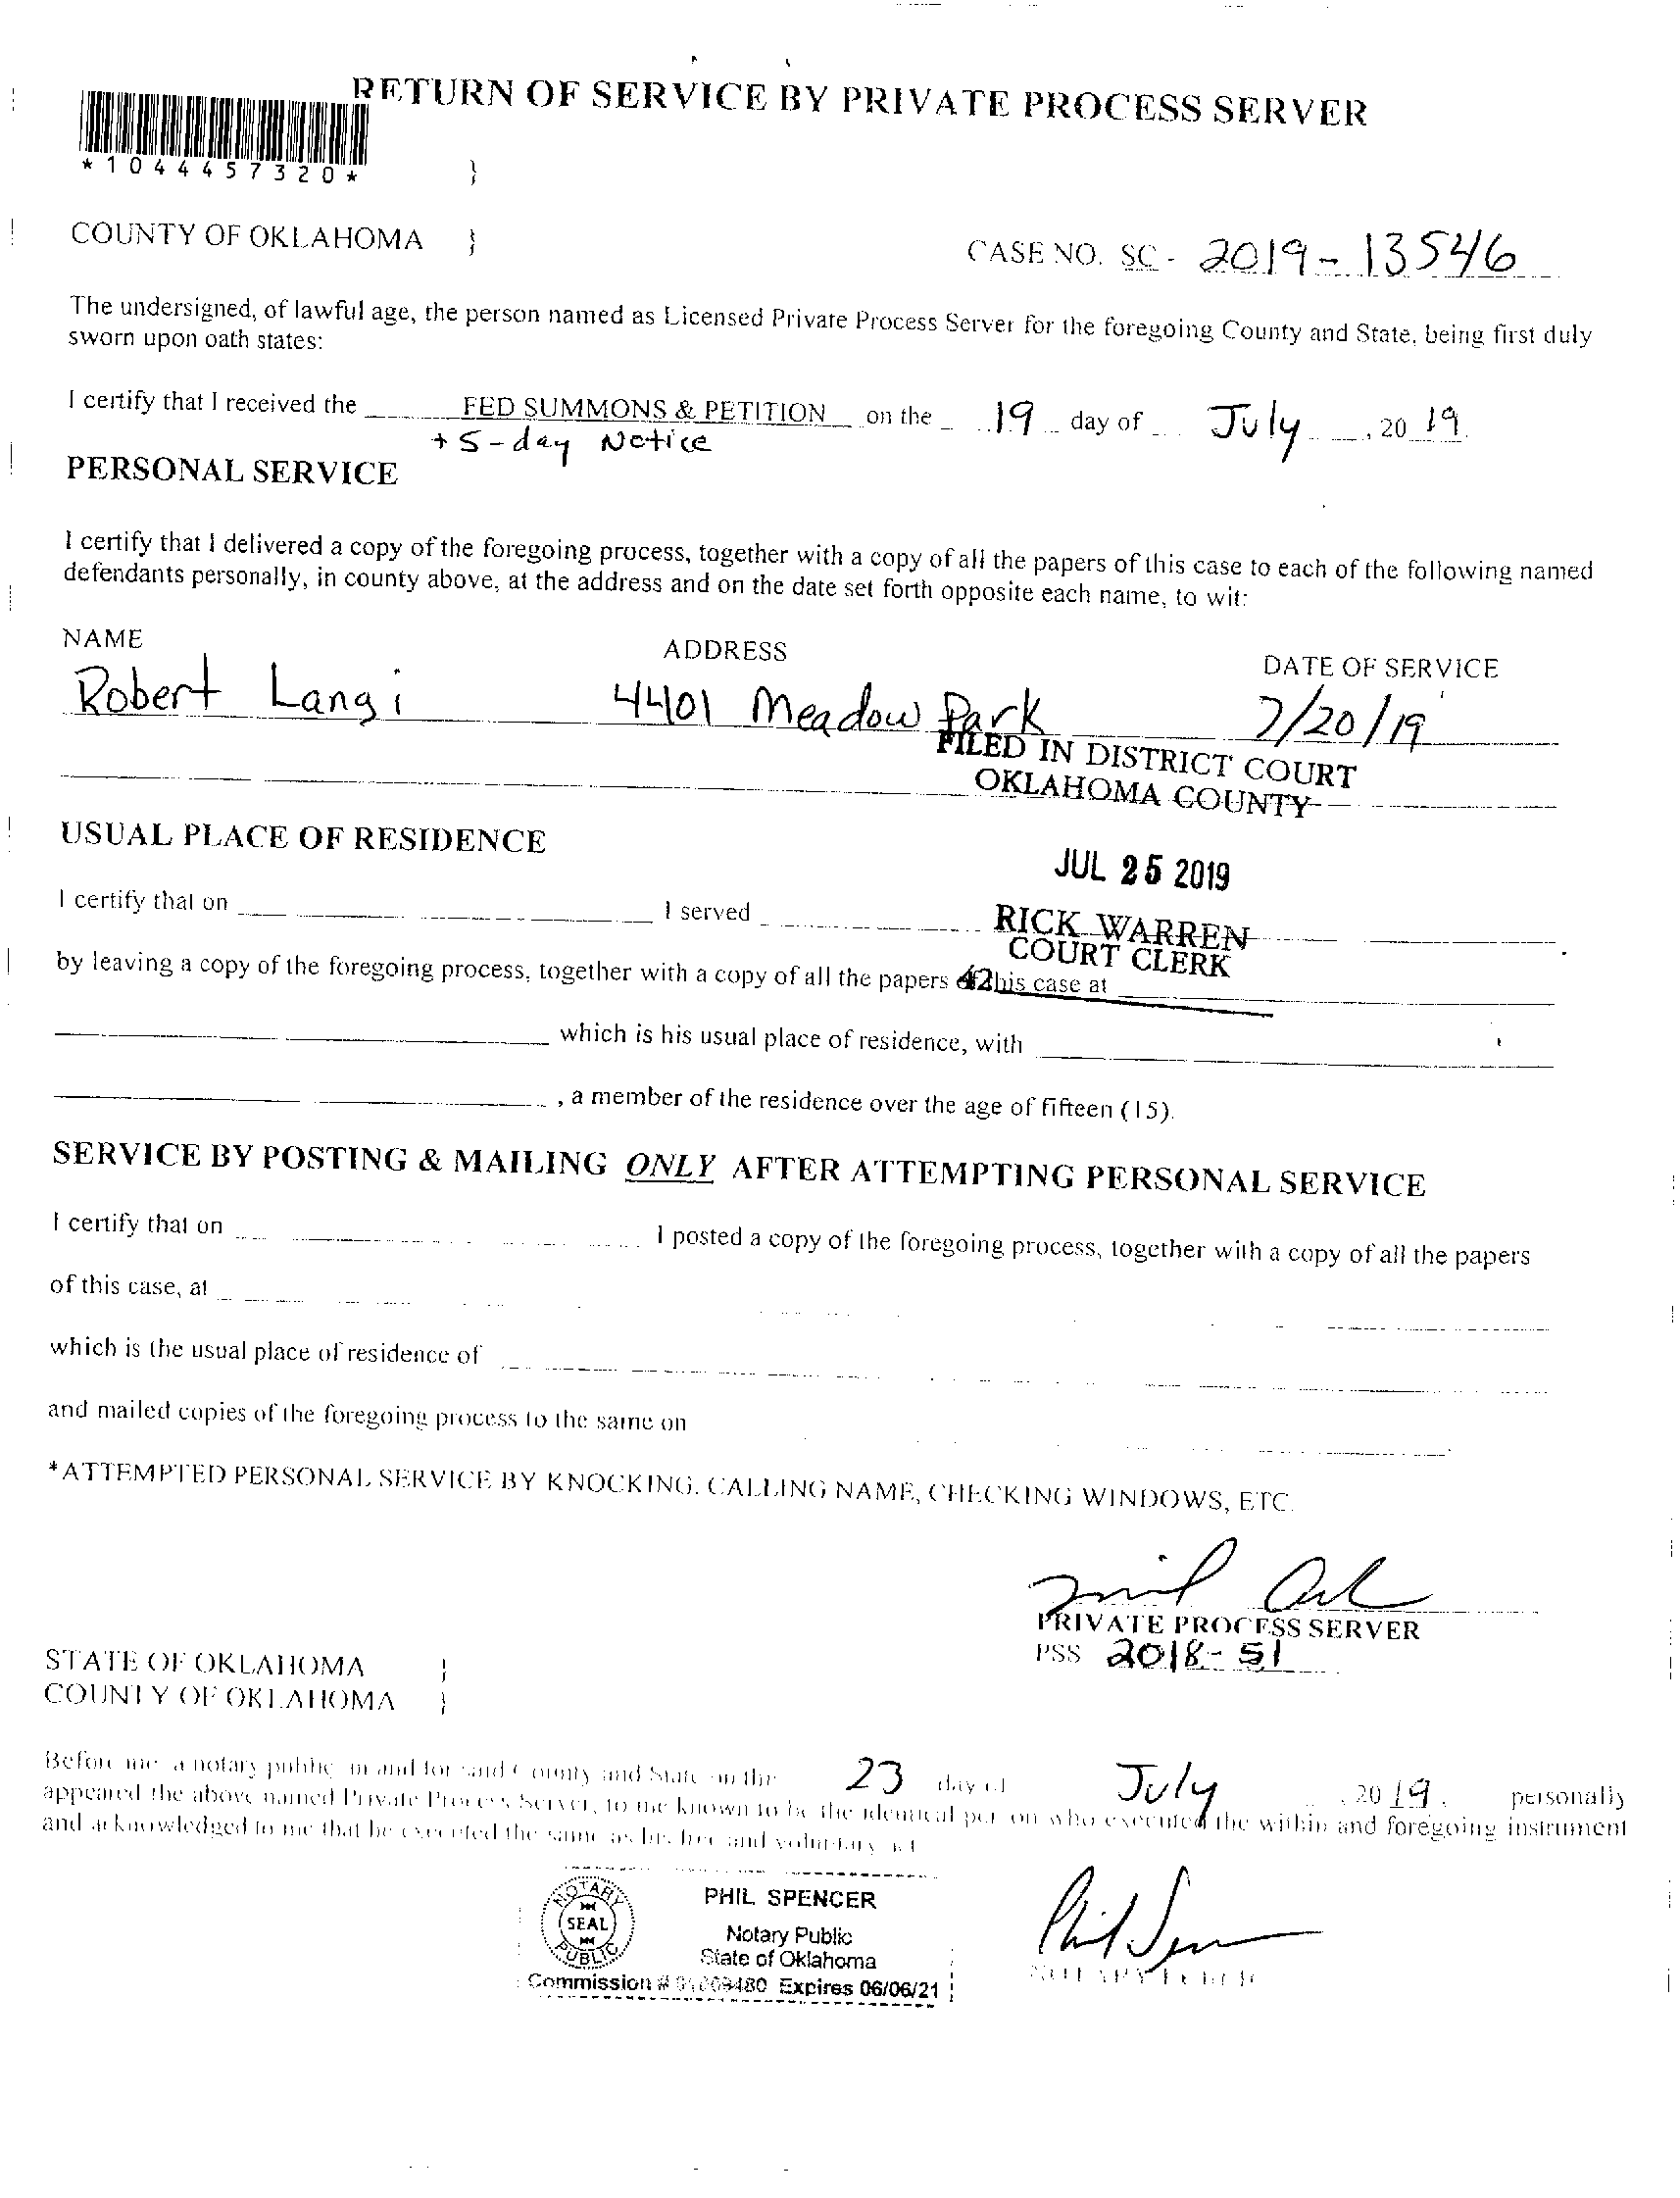 RETURN OF SERVICE BY PRIVATE PROCESS SERVER
*1044457320*
}
COUNTY OF OKLAHOMA }
CASE NO. SC - 2019-13546
The undersigned, of lawful age, the person named as Licensed Private Process Server for the foregoing County and State, being first duly
sworn upon oath states:
I certify that I received the FED SUMMONS & PETITION on the 19 day of July, 20 19.
+ 5-day Notice
PERSONAL SERVICE
I certify that I delivered a copy of the foregoing process, together with a copy of all the papers of this case to each of the following named
defendants personally, in county above, at the address and on the date set forth opposite each name, to wit:
NAME ADDRESS DATE OF SERVICE
Robert Langi 4401 Meadow Park 7/20/19
FILED IN DISTRICT COURT
OKLAHOMA COUNTY
USUAL PLACE OF RESIDENCE
JUL 25 2019
I certify that on I served
RICK WARREN
COURT CLERK
by leaving a copy of the foregoing process, together with a copy of all the papers of this case at
42
which is his usual place of residence, with
, a member of the residence over the age of fifteen (15).
SERVICE BY POSTING & MAILING ONLY AFTER ATTEMPTING PERSONAL SERVICE
I certify that on I posted a copy of the foregoing process, together with a copy of all the papers
of this case, at
which is the usual place of residence of
and mailed copies of the foregoing process to the same on
*ATTEMPTED PERSONAL SERVICE BY KNOCKING, CALLING NAME, CHECKING WINDOWS, ETC.
PRIVATE PROCESS SERVER
PSS 2018-51
STATE OF OKLAHOMA }
COUNTY OF OKLAHOMA }
Before me a notary public in and for said County and State on the 23 day of July, 2019, personally
appeared the above named Private Process Server, to me known to be the identical person who executed the within and foregoing instrument
and acknowledged to me that he executed the same as his free and voluntary act
NOTARY
SEAL
PUBLIC
PHIL SPENCER
Notary Public
State of Oklahoma
Commission # Expires 06/06/21
NOTARY PUBLIC